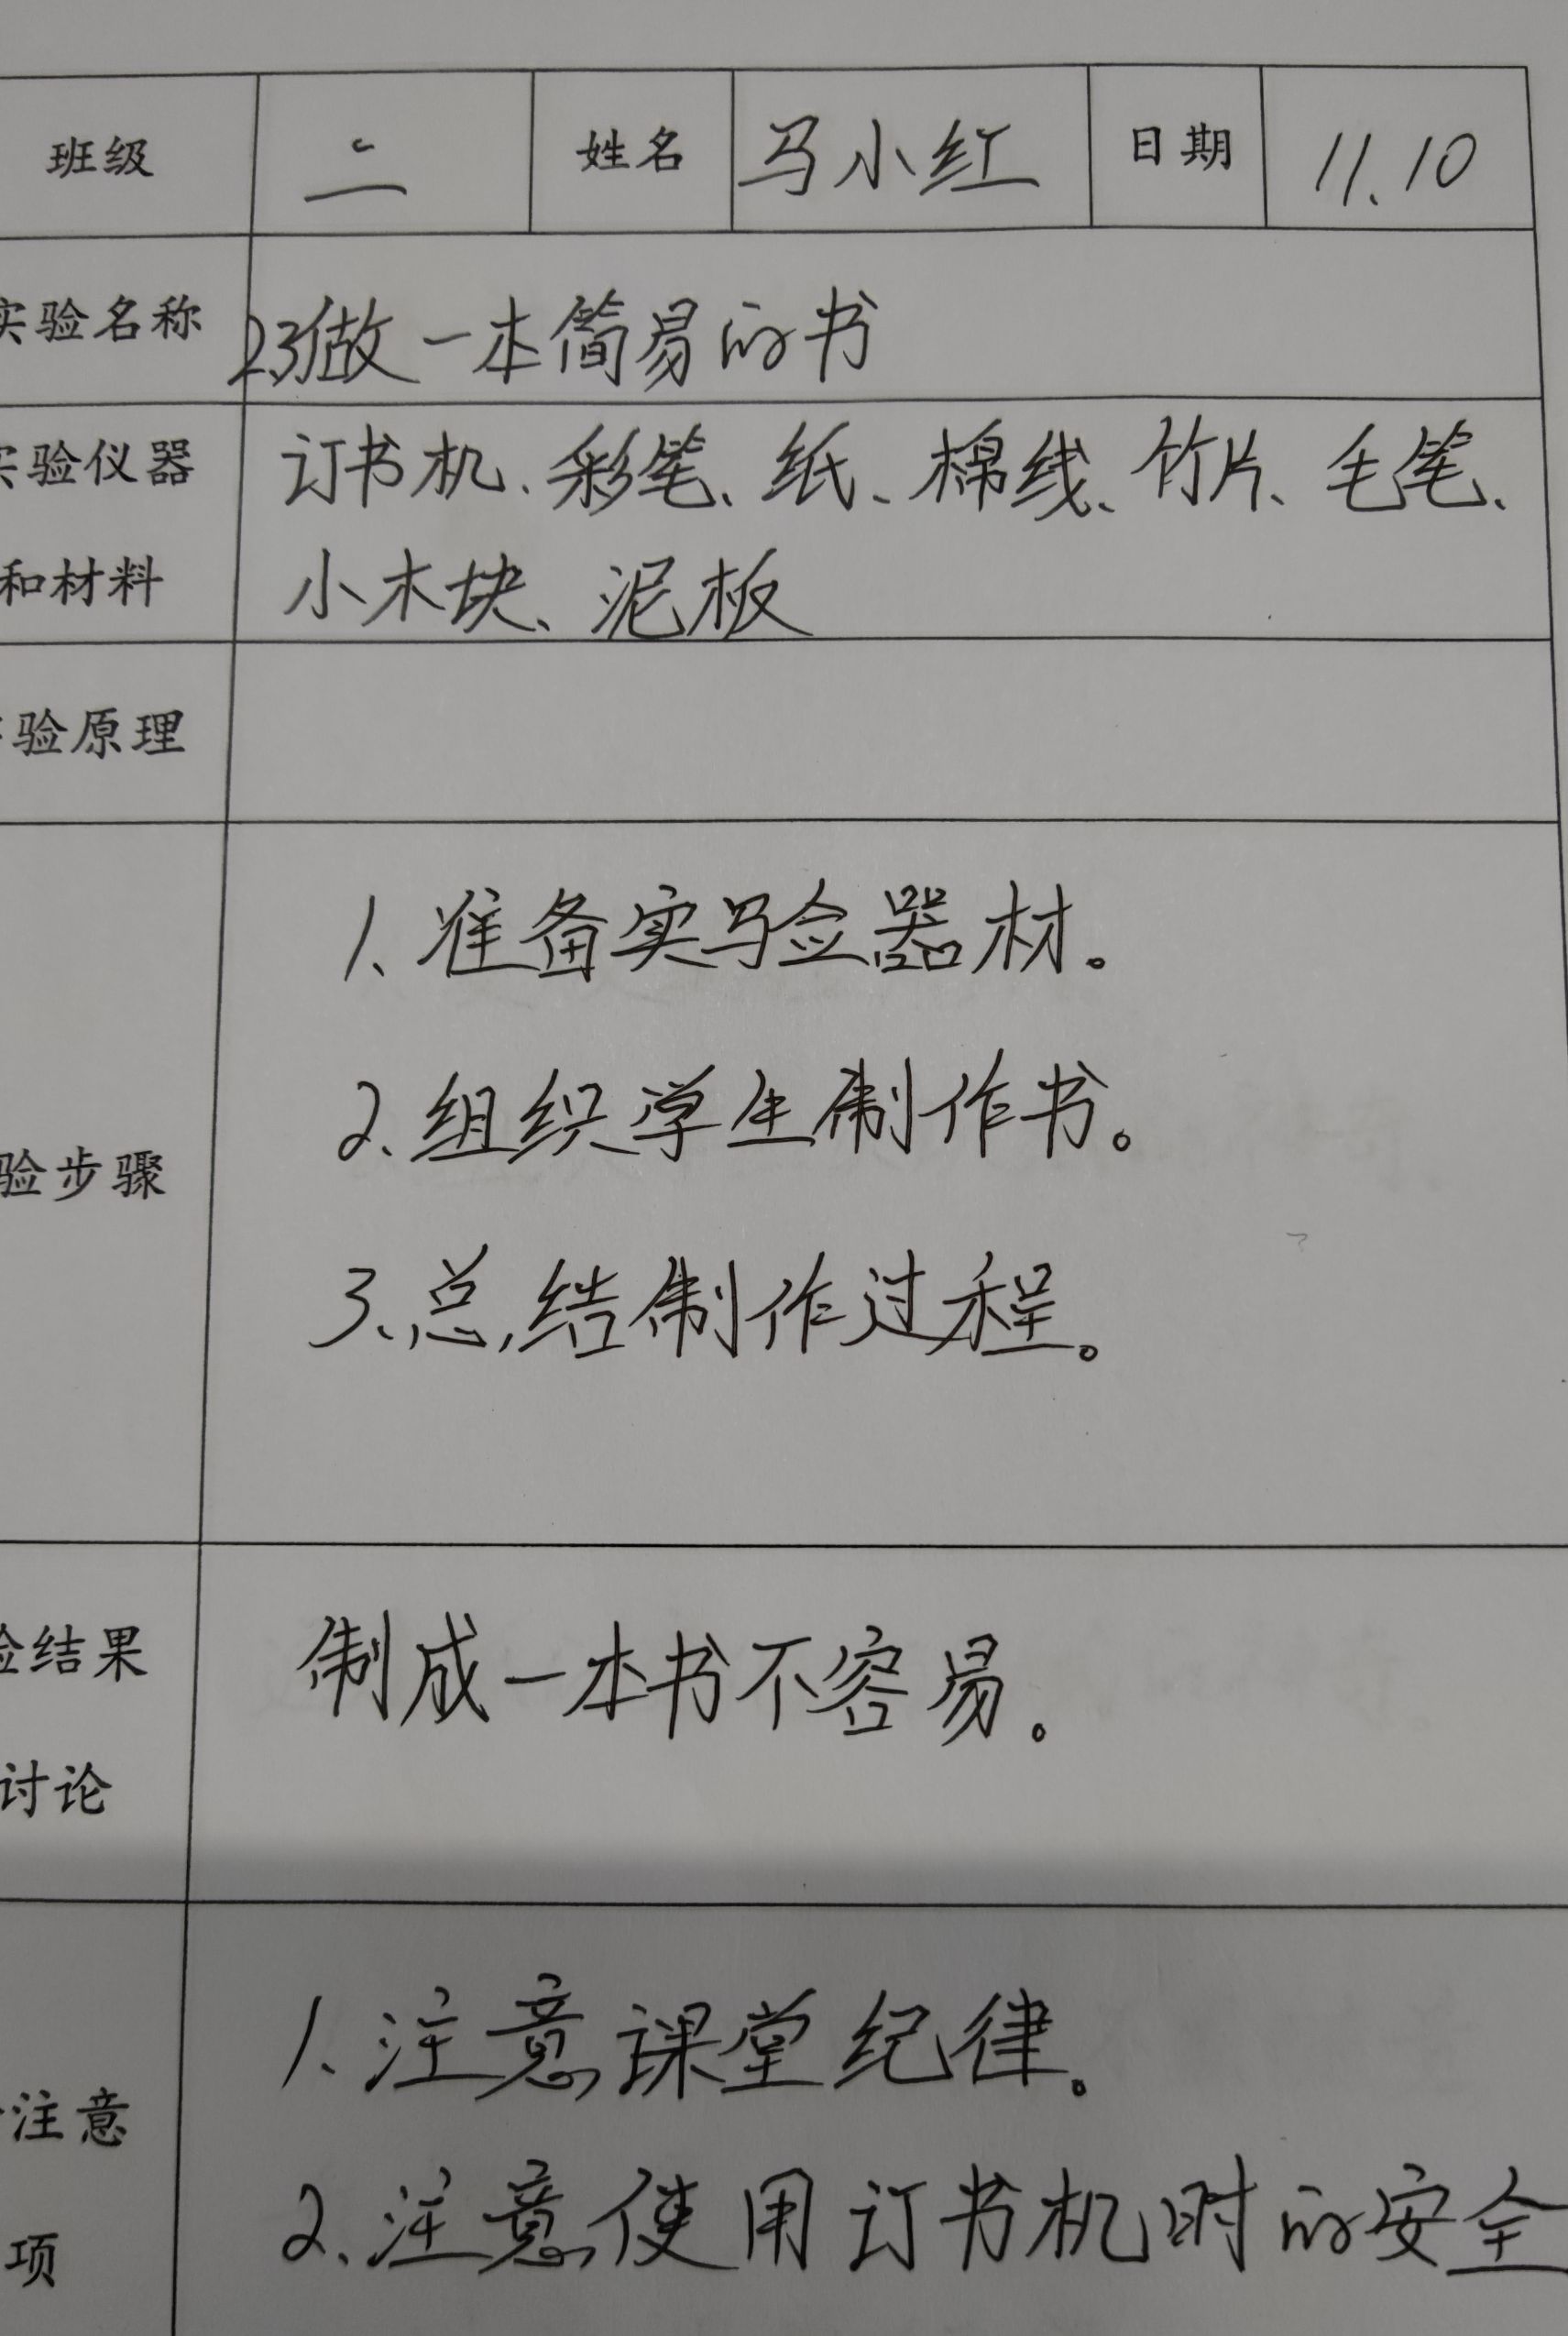 班级 二 姓名 马小红 日期 11.10
实验名称 2.3做一本简易的书
实验仪器 订书机、彩笔、纸、棉线、竹片、毛笔、
和材料 小木块、泥板
验原理
1、准备实验器材。
2、组织学生制作书。
验步骤
3、总结制作过程。
验结果 制成一本书不容易。
讨论
1、注意课堂纪律。
注意
2、注意使用订书机时的安全
项